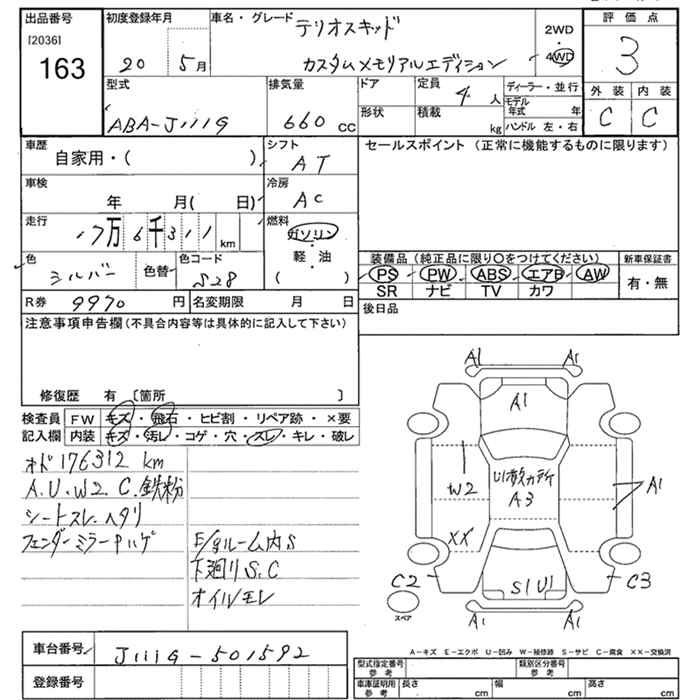 出品番号 初度登録年月 車名・グレード テリオスキッド 2WD 評価点
[2036] 163 20 5月 カスタムメモリアルエディション 4WD 3
型式 排気量 ドア 定員 4人 ディーラー・並行 外装 内装
ABA-J111G 660 CC 形状 積載 kg モデル年式 年 C C
ハンドル 左・右
車歴 自家用・( ) シフト AT セールスポイント (正常に機能するものに限ります)
車検 年 月( 日) 冷房 AC
走行 17万6千311km 燃料 ガソリン・軽・油 ( )
色 シルバー 色替 色コード S28 装備品 (純正品に限り○をつけてください) 新車保証書
PS PW ABS エアB AW 有・無
SR ナビ TV カワ
R券 9970円 名変期限 月 日 後日品
注意事項申告欄 (不具合内容等は具体的に記入して下さい)
修復歴 有 〔箇所 〕
検査員 FW キズ・飛石・ヒビ割・リペア跡・×要
記入欄 内装 キズ・汚レ・コゲ・穴・スレ・キレ・破レ
オド176312 km
A.U.W2.C.鉄粉
シートスレ.ヘタリ
フェンダーミラー中ハゲ E/gルーム内S
下廻りS.C
オイルモレ
A1 A1
A1
W2 U複数カ所 A3 A1
XX
C2 S1 U1 C3
スペア A1 A1
A-キズ E-エクボ U-凹み W-補修跡 S-サビ C-腐食 ××-交換済
車台番号 J111G-501592 型式指定番号 参考 類別区分番号 参考
登録番号 車庫証明用 参考 長さ cm 幅 cm 高さ cm